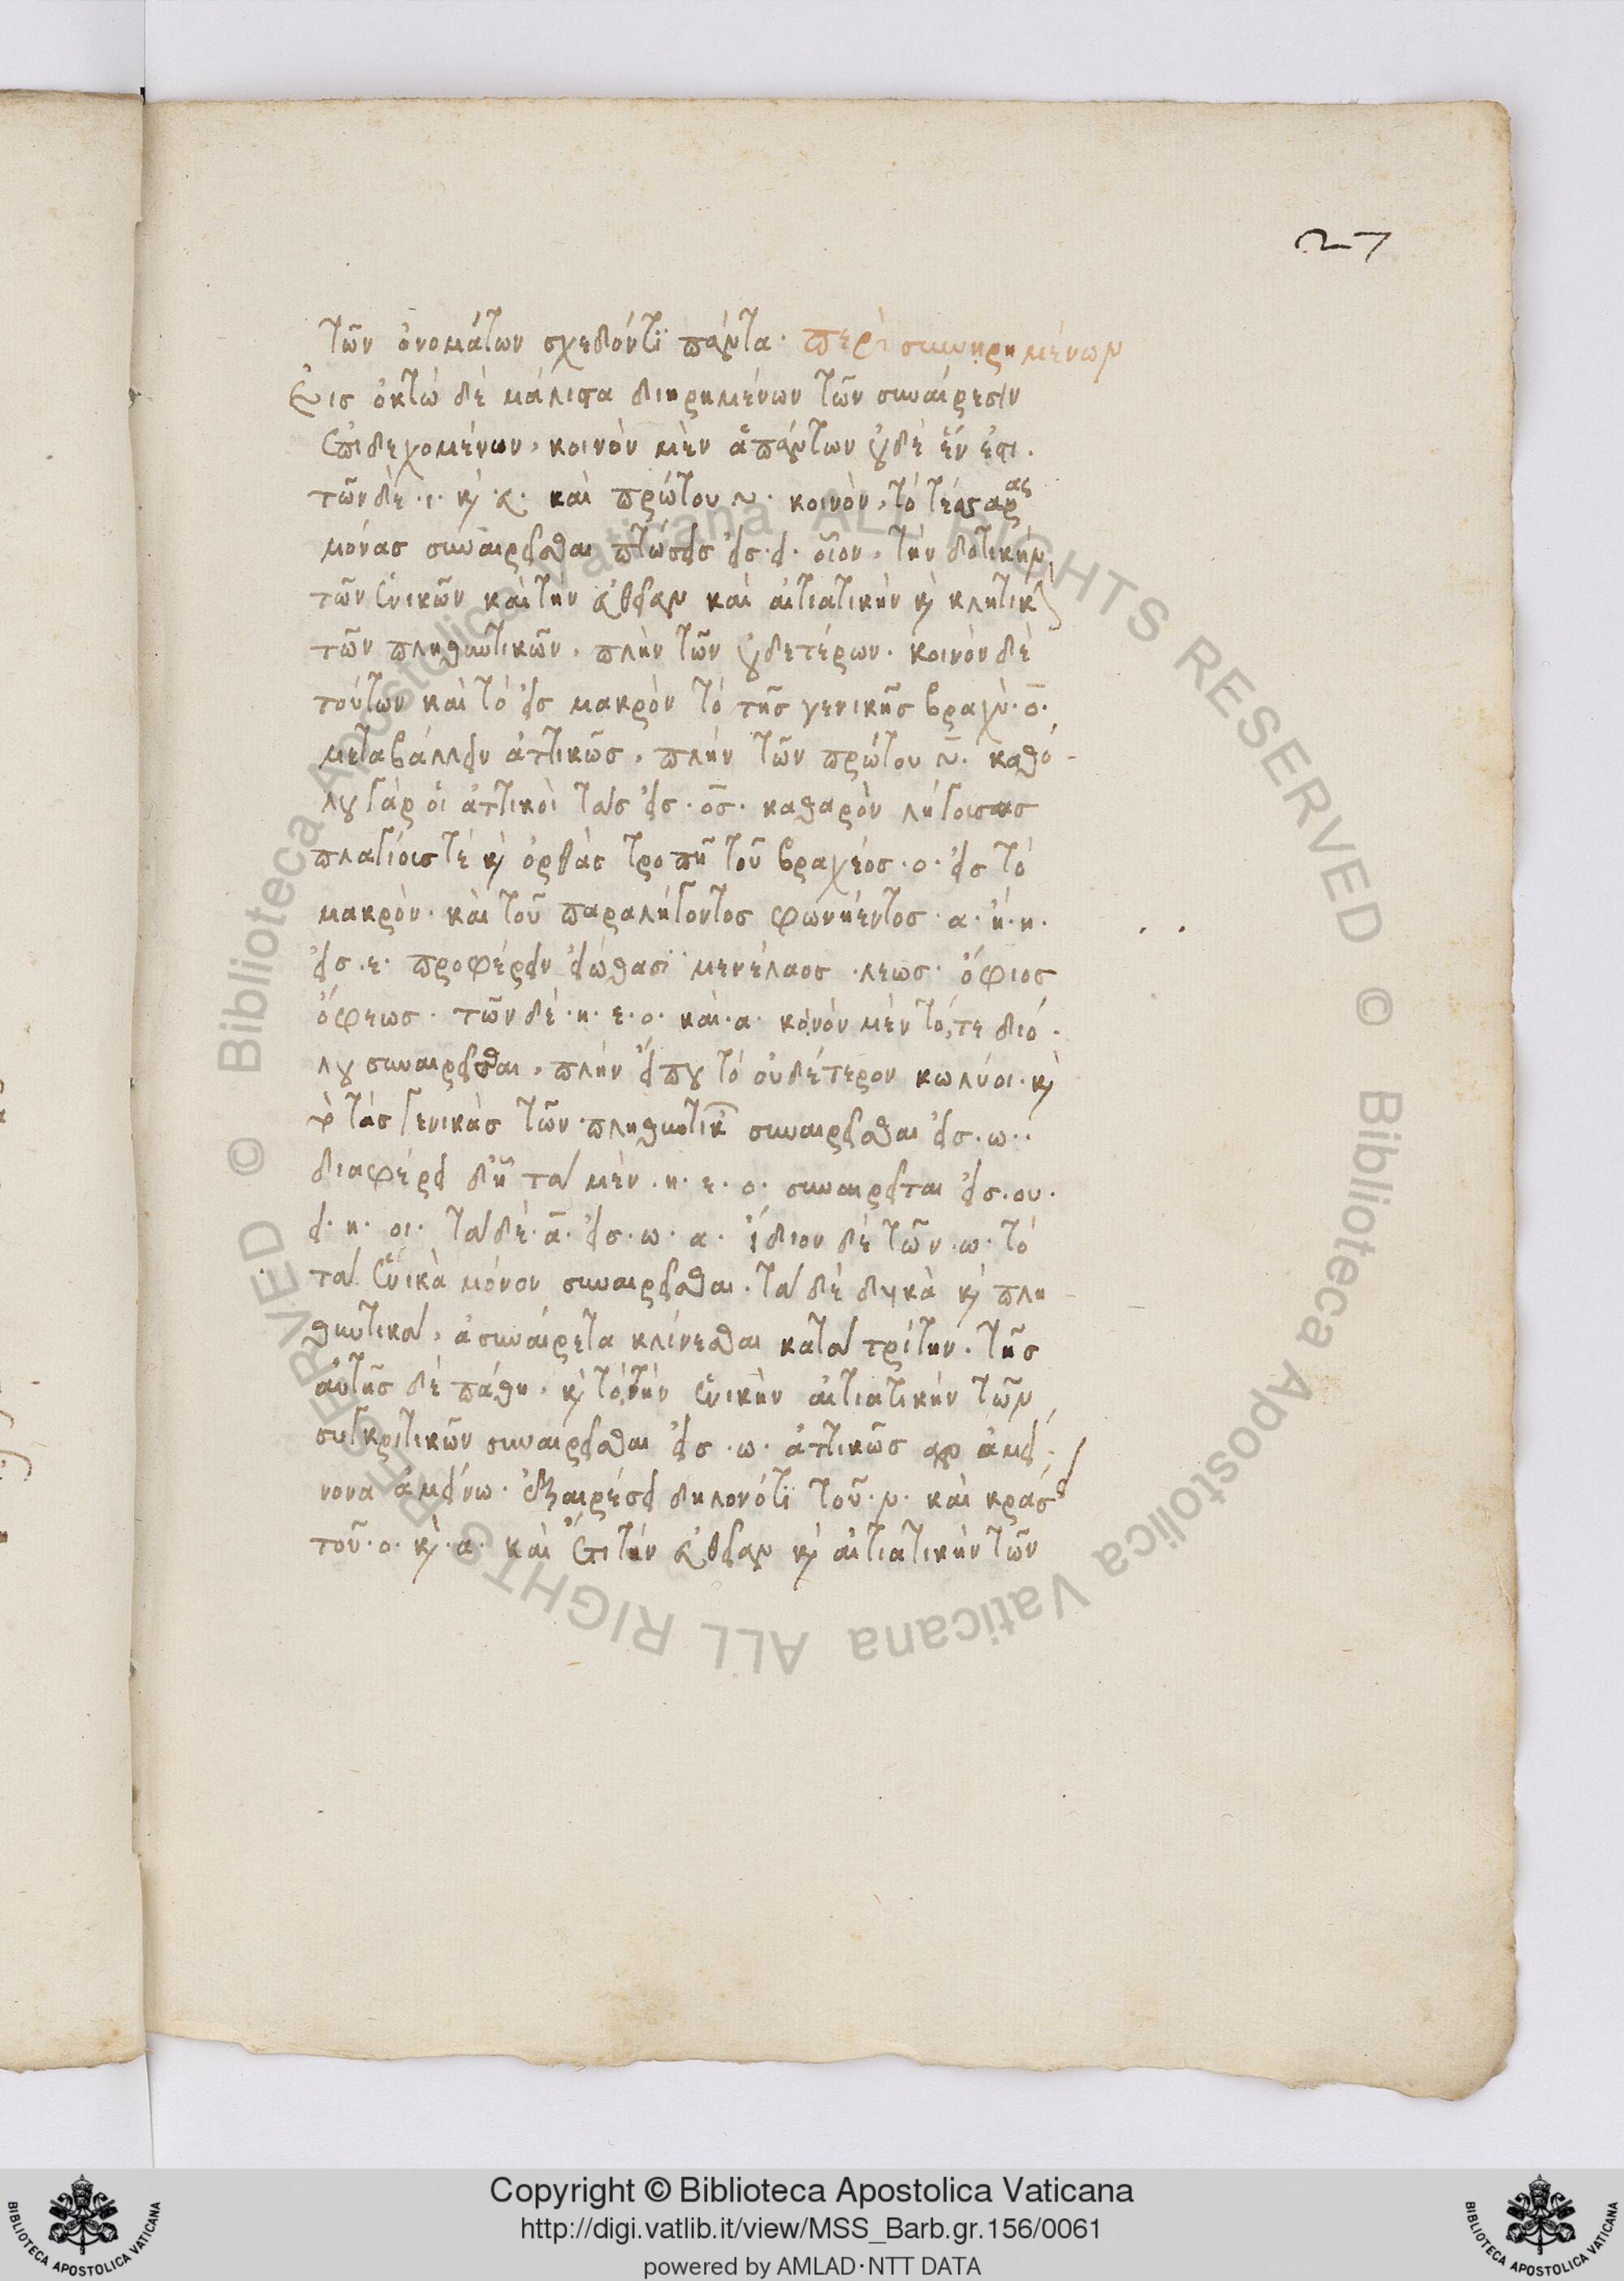 27
τῶν ὀνομάτων σχεδόντι πάντα. περὶ συνῃρημένων
Εἰς ὀκτὼ δὲ μάλιστα διῃρημένων τῶν συναίρεσιν
ἐπιδεχομένων, κοινὸν μὲν ἁπάντων οὐδὲ ἕν ἐστι.
τῶν δὲ .ι. καὶ .ε. καὶ πρώτου υ. κοινὸν, τὸ τέσσαρας
μόνας συναιρεῖσθαι πτώσεις εἰς .ει. οἷον, τὴν δοτικὴν
τῶν ἑνικῶν καὶ τὴν εὐθεῖαν καὶ αἰτιατικὴν καὶ κλητικὴν
τῶν πληθυντικῶν. πλὴν τῶν οὐδετέρων. κοινὸν δὲ
τούτων καὶ τὸ εἰς μακρὸν τὸ τῆς γενικῆς βραχὺ .ο.
μεταβάλλειν ἀττικῶς, πλὴν τῶν πρώτου υ. καθό-
λου γὰρ οἱ ἀττικοὶ τὰς εἰς .ος. καθαρὸν ληγούσας
πλαγίους τὲ καὶ ὀρθὰς τροπῇ τοῦ βραχέος .ο. εἰς τὸ
μακρὸν. καὶ τοῦ παραλήγοντος φωνήεντος .α. ἢ .ι.
εἰς .ε. προφέρειν εἰώθασι μενέλαος .λεως. ὄφιος
ὄφεως. τῶν δὲ .η. ε. ο. καὶ .α. κοινὸν μὲν τό,τε διό-
λου συναιρεῖσθαι, πλὴν εἴπου τὸ οὐδέτερον κωλύοι. καὶ
τὸ τὰς γενικὰς τῶν πληθυντικῶν συναιρεῖσθαι εἰς .ω..
διαφέρει δ' ἧ τὰ μὲν .η. ε. ο. συναιρεῖται εἰς .ου.
ει. η. οι. τὰ δὲ .α. εἰς .ω. α. ἴδιον δὲ τῶν .ω. τὸ
τὰ ἑνικὰ μόνον συναιρεῖσθαι. τὰ δὲ δυϊκὰ καὶ πλη-
θυντικὰ, ἀσυναίρετα κλίνεσθαι κατὰ τρίτην. τῆς
αὐτῆς δὲ πάθη. καὶ τὸ,τὴν ἑνικὴν αἰτιατικὴν τῶν
συγκριτικῶν συναιρεῖσθαι εἰς .ω. ἀττικῶς ἀμεί-
νονα ἀμείνω. ἐξαιρέσει δηλονότι τοῦ .ν. καὶ κράσει
τοῦ .ο. καὶ .α. καὶ ἔτι τὴν εὐθεῖαν καὶ αἰτιατικὴν τῶν
Copyright © Biblioteca Apostolica Vaticana
http://digi.vatlib.it/view/MSS_Barb.gr.156/0061
powered by AMLAD·NTT DATA